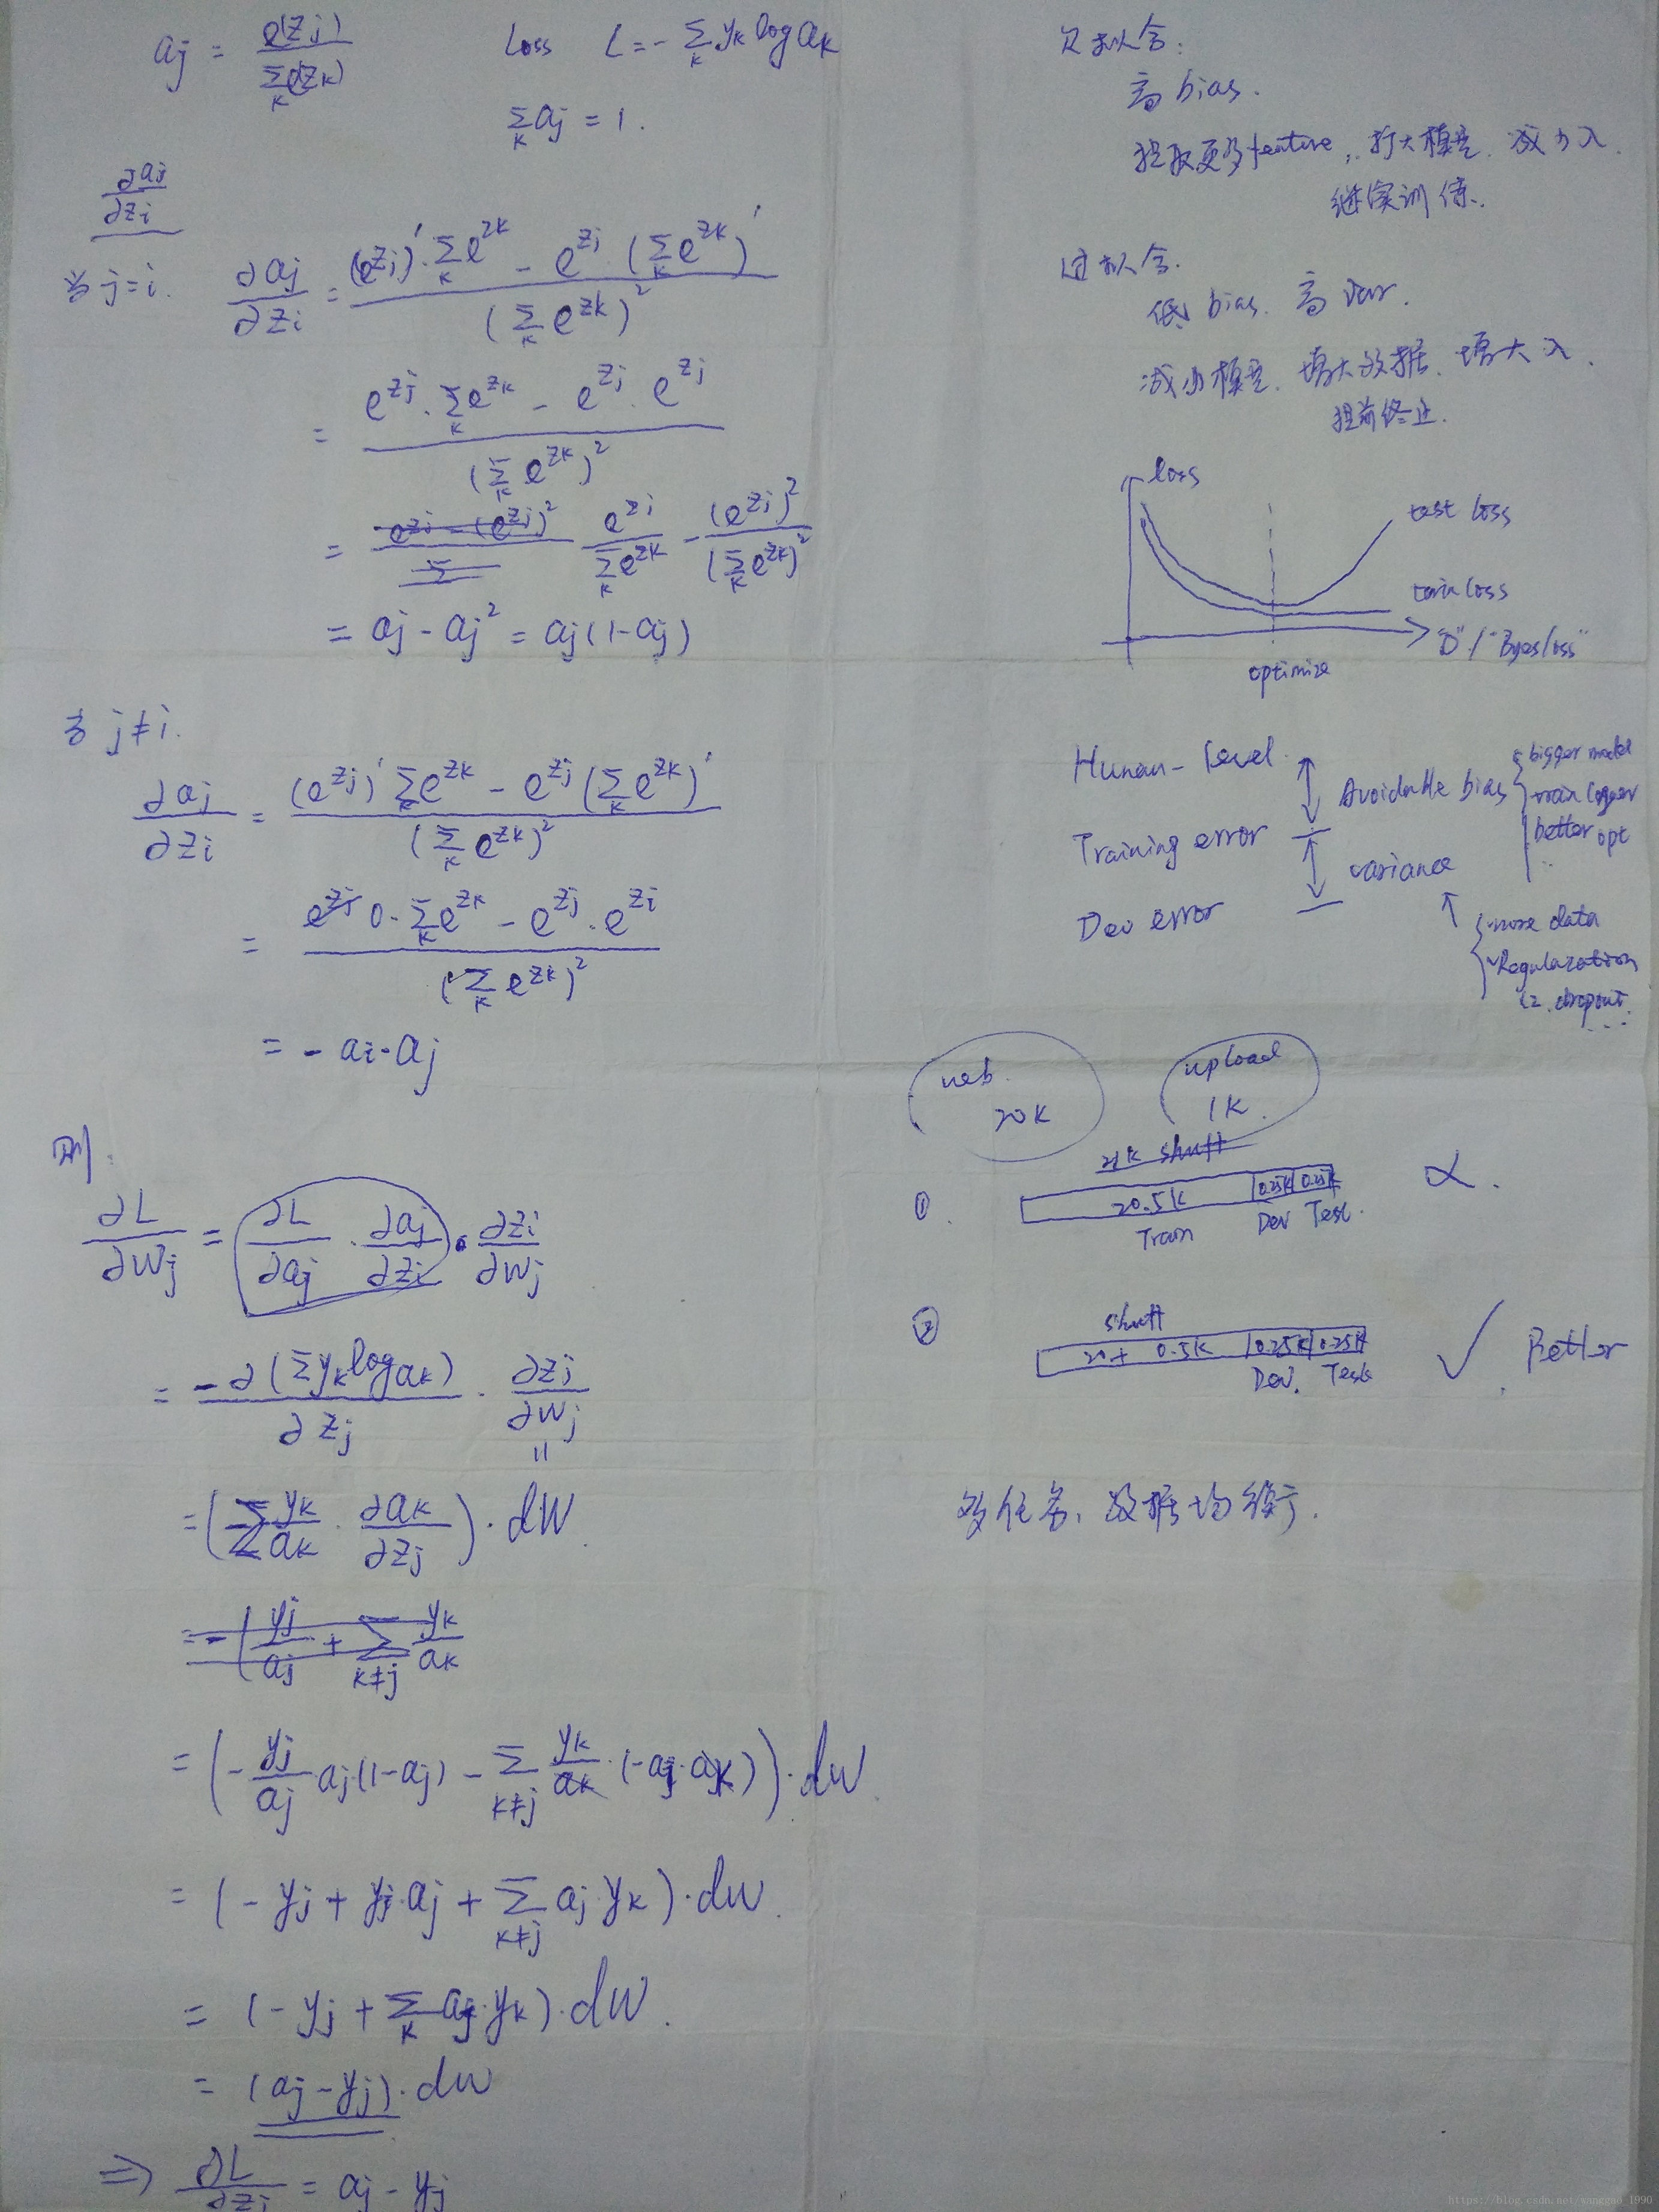 aj = e(zj) / Σk e(zk)
Loss L = - Σk yk log ak
Σk aj = 1.
∂aj / ∂zi
当 j=i. ∂aj/∂zi = ((e^zj)' · Σk e^zk - e^zj · (Σk e^zk)') / (Σk e^zk)^2
= (e^zj · Σk e^zk - e^zj · e^zj) / (Σk e^zk)^2
= e^zj / Σk e^zk - (e^zj)^2 / (Σk e^zk)^2
= aj - aj^2 = aj(1-aj)
当 j≠i.
∂aj/∂zi = ((e^zj)' Σk e^zk - e^zj (Σk e^zk)') / (Σk e^zk)^2
= (0 · Σk e^zk - e^zj · e^zi) / (Σk e^zk)^2
= - ai · aj
则.
∂L/∂wj = ∂L/∂aj · ∂aj/∂zi · ∂zi/∂wj
= -∂(Σ yk log ak) / ∂zj · ∂zj/∂wj
= (-Σ yk/ak · ∂ak/∂zj) · dW
= (- yj/aj · aj(1-aj) - Σk≠j yk/ak · (-aj·ak)) · dW
= (- yj + yj·aj + Σk≠j aj yk) · dW.
= (- yj + Σk aj·yk) · dW.
= (aj - yj) · dW
⇒ ∂L/∂zj = aj - yj
欠拟合:
高 bias.
提取更多feature, 扩大模型. 减小λ.
继续训练.
过拟合.
低 bias. 高 var.
减小模型. 增大数据. 增大λ.
提前终止.
loss
test loss
train loss
"0" / "Byes loss"
optimize
Human-level
Avoidable bias
bigger model
train longer
better opt
..
Training error
variance
Dev error
more data
Regularation
L2. dropout.
...
web
20K
upload
1K.
21K shuff
① 20.5K 0.25K 0.25K
Train Dev Test.
②
shuff
20 + 0.5K 0.25K 0.25K
Dev. Test
✓ Better
多任务, 数据均衡.
https://blog.csdn.net/yangguo_1990